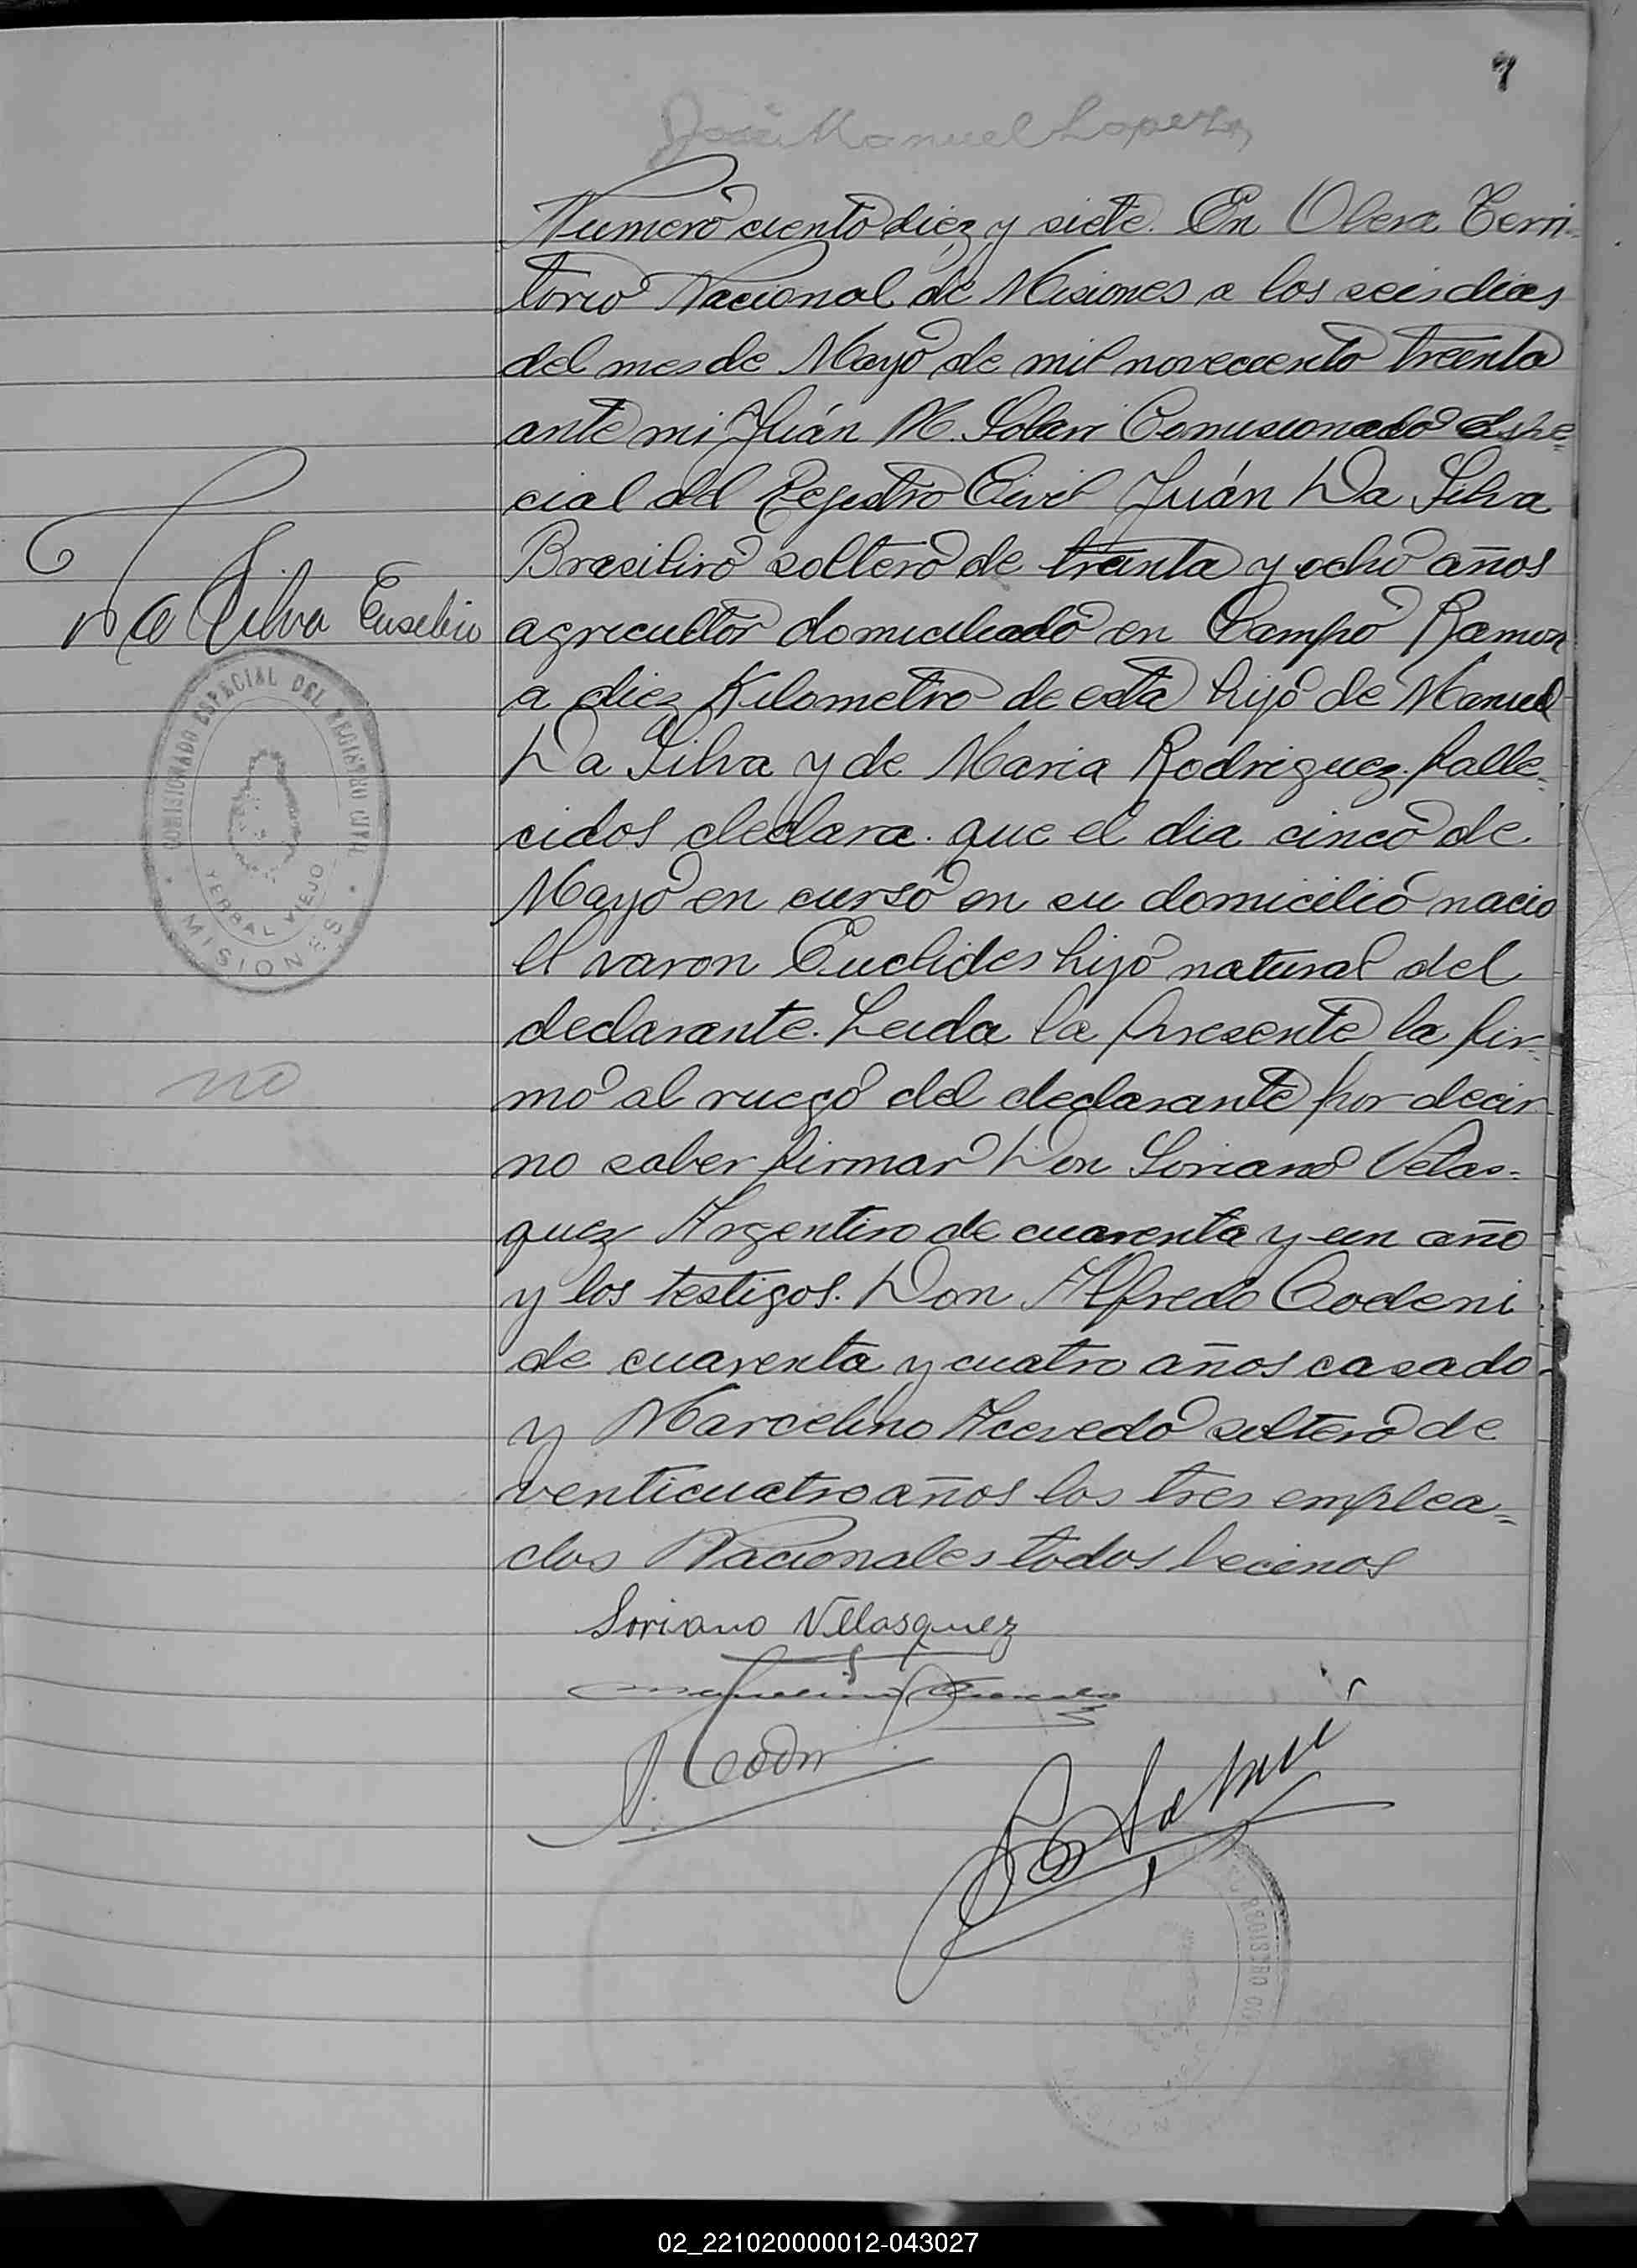 9
José Manuel Lopez
Numero ciento diez y siete. En Obera Terri-
torio Nacional de Misiones a los seis dias
del mes de Mayo de mil novecciento treenta
ante mi Juán M. Solari Comisionado Espe=
cial del Registro Civil Juán Da Silva
Brasiliro soltero de treinta y ocho años
agricultor domiciliado en Campo Ramon
a diez Kilometro de esta hijo de Manuel
Da Silva y de Maria Rodriguez. falle=
cidos declara. que el dia cinco de
Mayo en curso en su domicilió nacio
el varon Euclides hijo natural del
declarante. Leida la presente la fir=
mó al ruego del declarante por decir
no saber firmar Don Soriano Velas=
quez Argentino de cuarenta y un año
y los testigos. Don Alfredo Codeni
de cuarenta y cuatro años casado
y Marcelino Acevedo soltero de
venticuatro años los tres emplea=
dos Nacionales todos vecinos
Da Silva Eusebio
COMISIONADO ESPECIAL DEL REGISTRO CIVIL
YERBAL VIEJO
MISIONES
no
Soriano Vellasquez
02_221020000012-043027